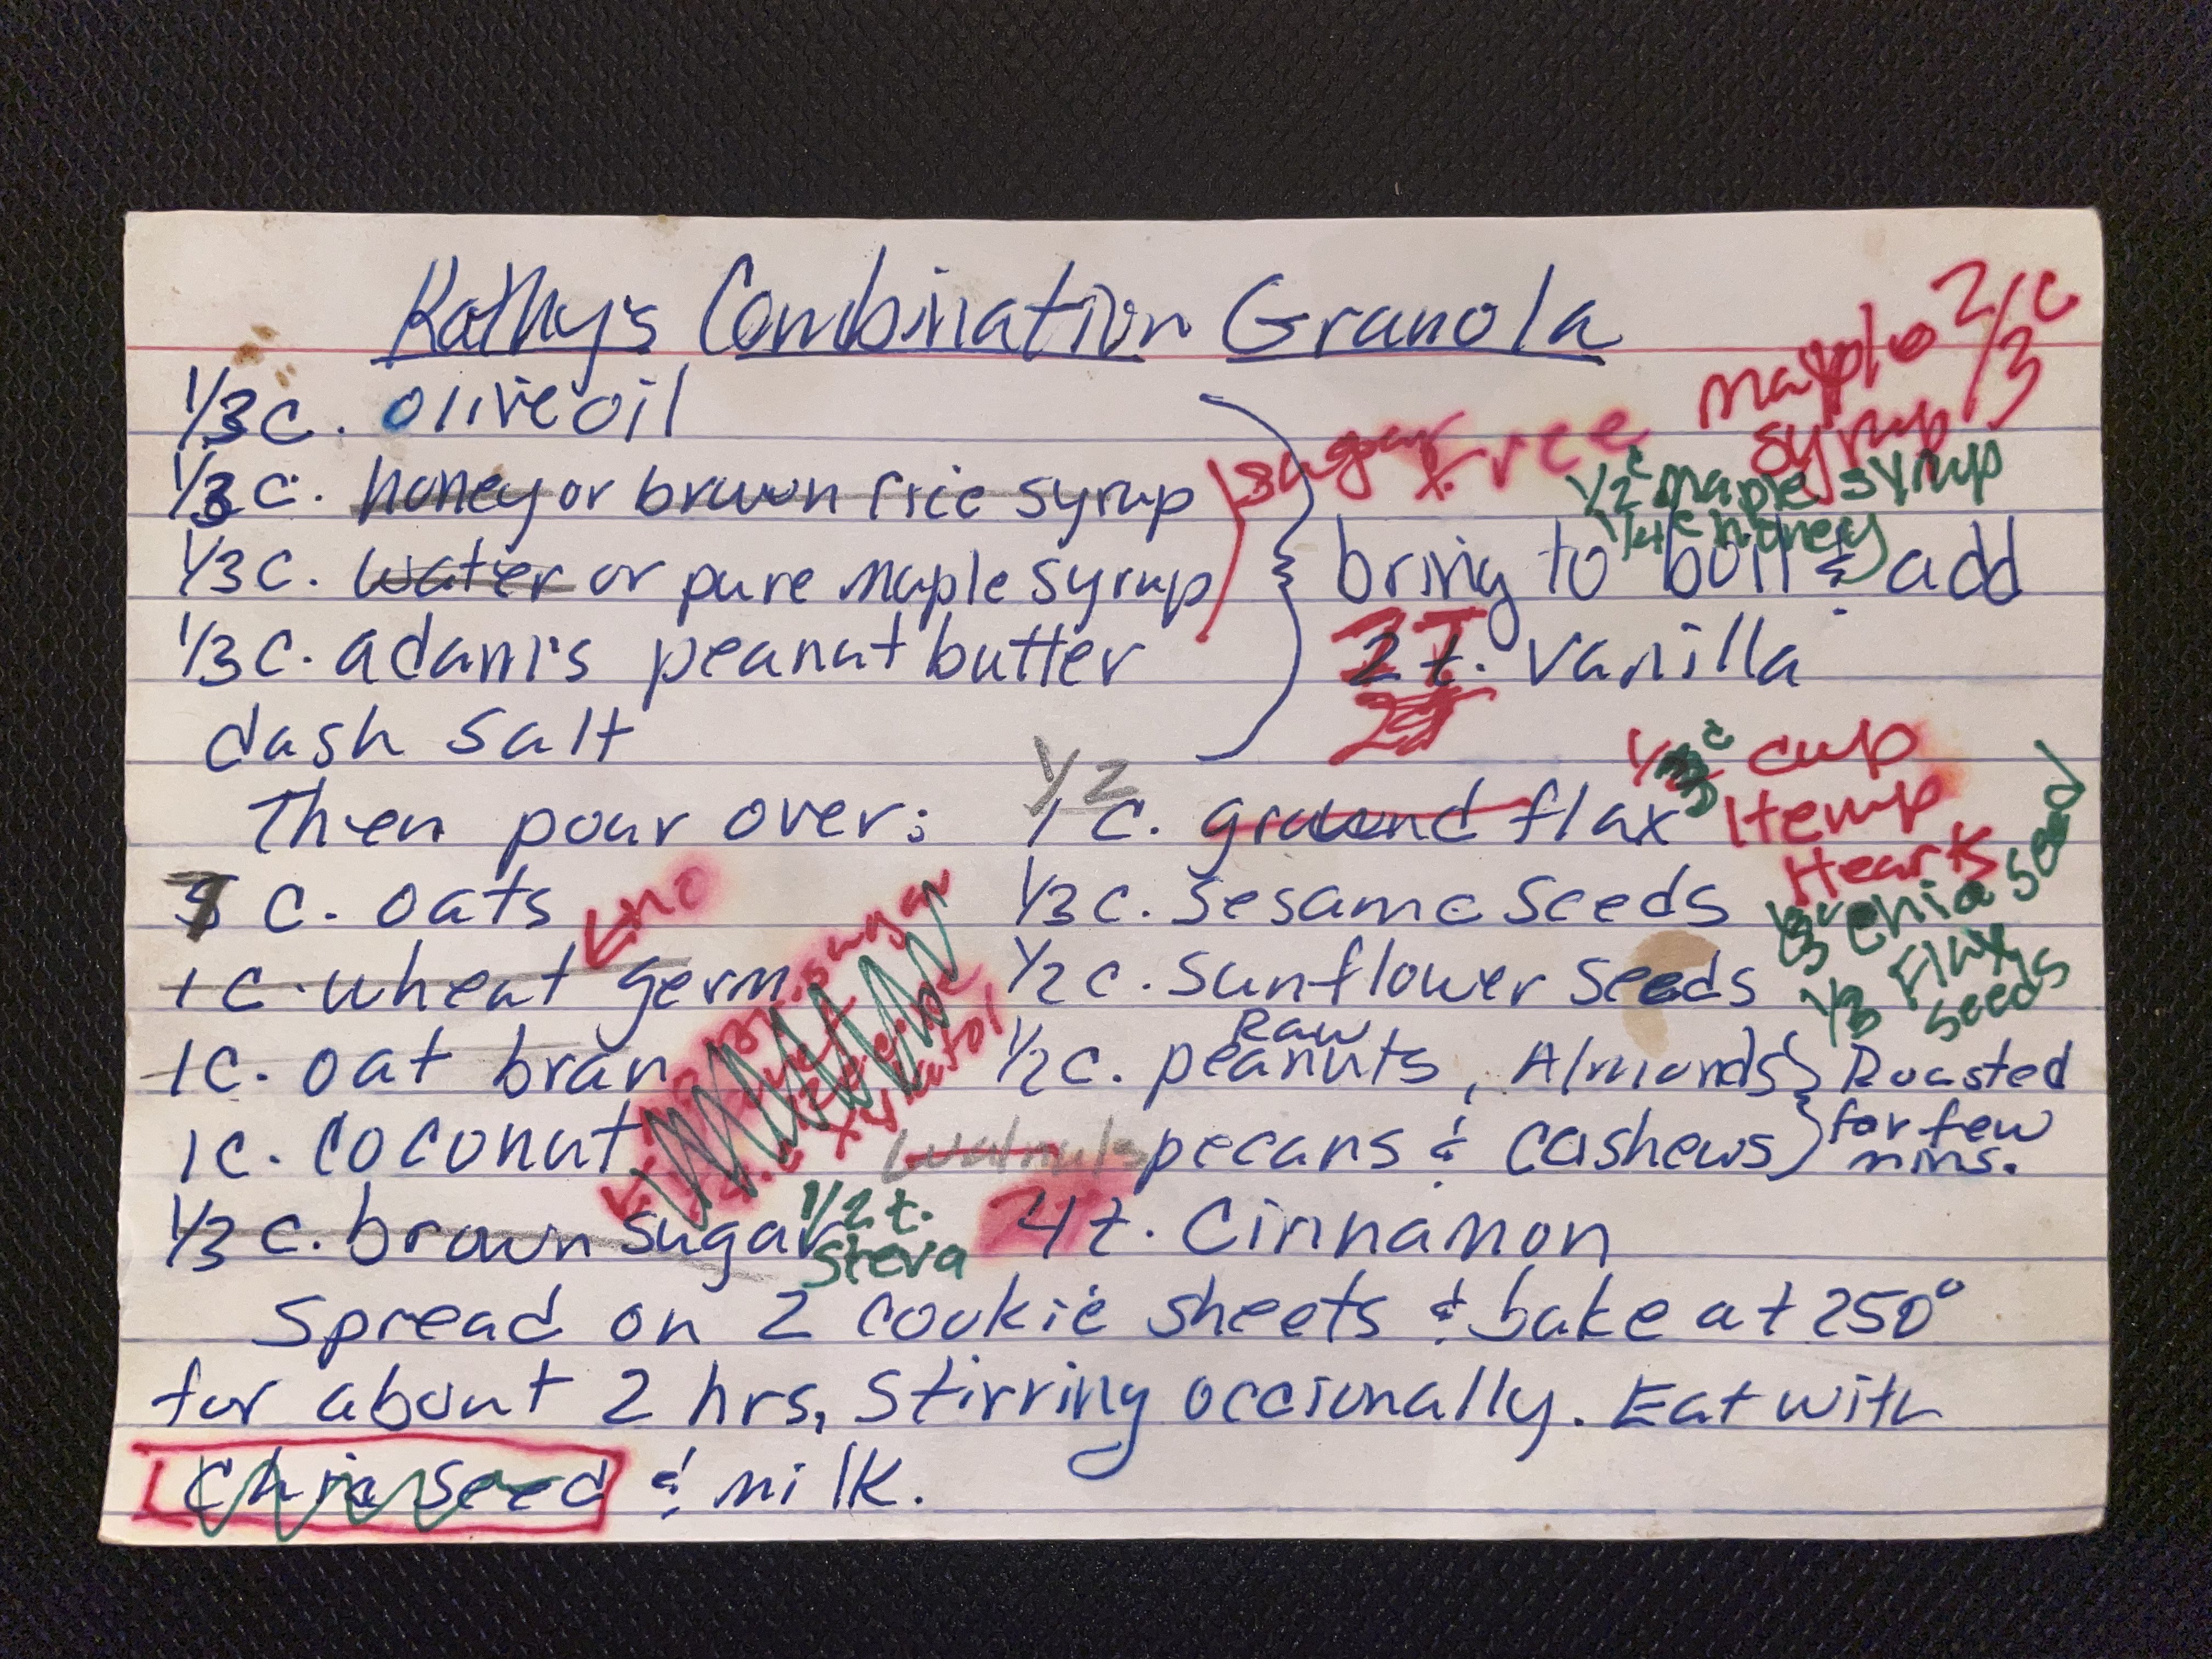 Kathy's Combination Granola
1/3 c. olive oil
1/3 c. honey or brown rice syrup
1/3 c. water or pure maple syrup
1/3 c. adam's peanut butter
dash salt
sugar free
mayple syrup 2/3 c
1/2 c maple syrup
1/4 c honey
bring to boil & add
2 t. vanilla
Then pour over:
7 c. oats
no
1 c. wheat germ
1 c. oat bran
1 c. coconut
1/3 c. brown sugar
sugar
1/2 t.
steva
1/2
1 c. ground flax
cup
Hemp
Hearts
1/3 c. sesame seeds
1/3 c chia seed
1/3 Flax
seeds
1/2 c. sunflower seeds
Raw
1/2 c. peanuts, Almonds
walnuts pecans & cashews
Roasted
for few
mins.
4 t. Cinnamon
Spread on 2 cookie sheets & bake at 250°
for about 2 hrs, stirring occionally. Eat with
chia seed & milk.